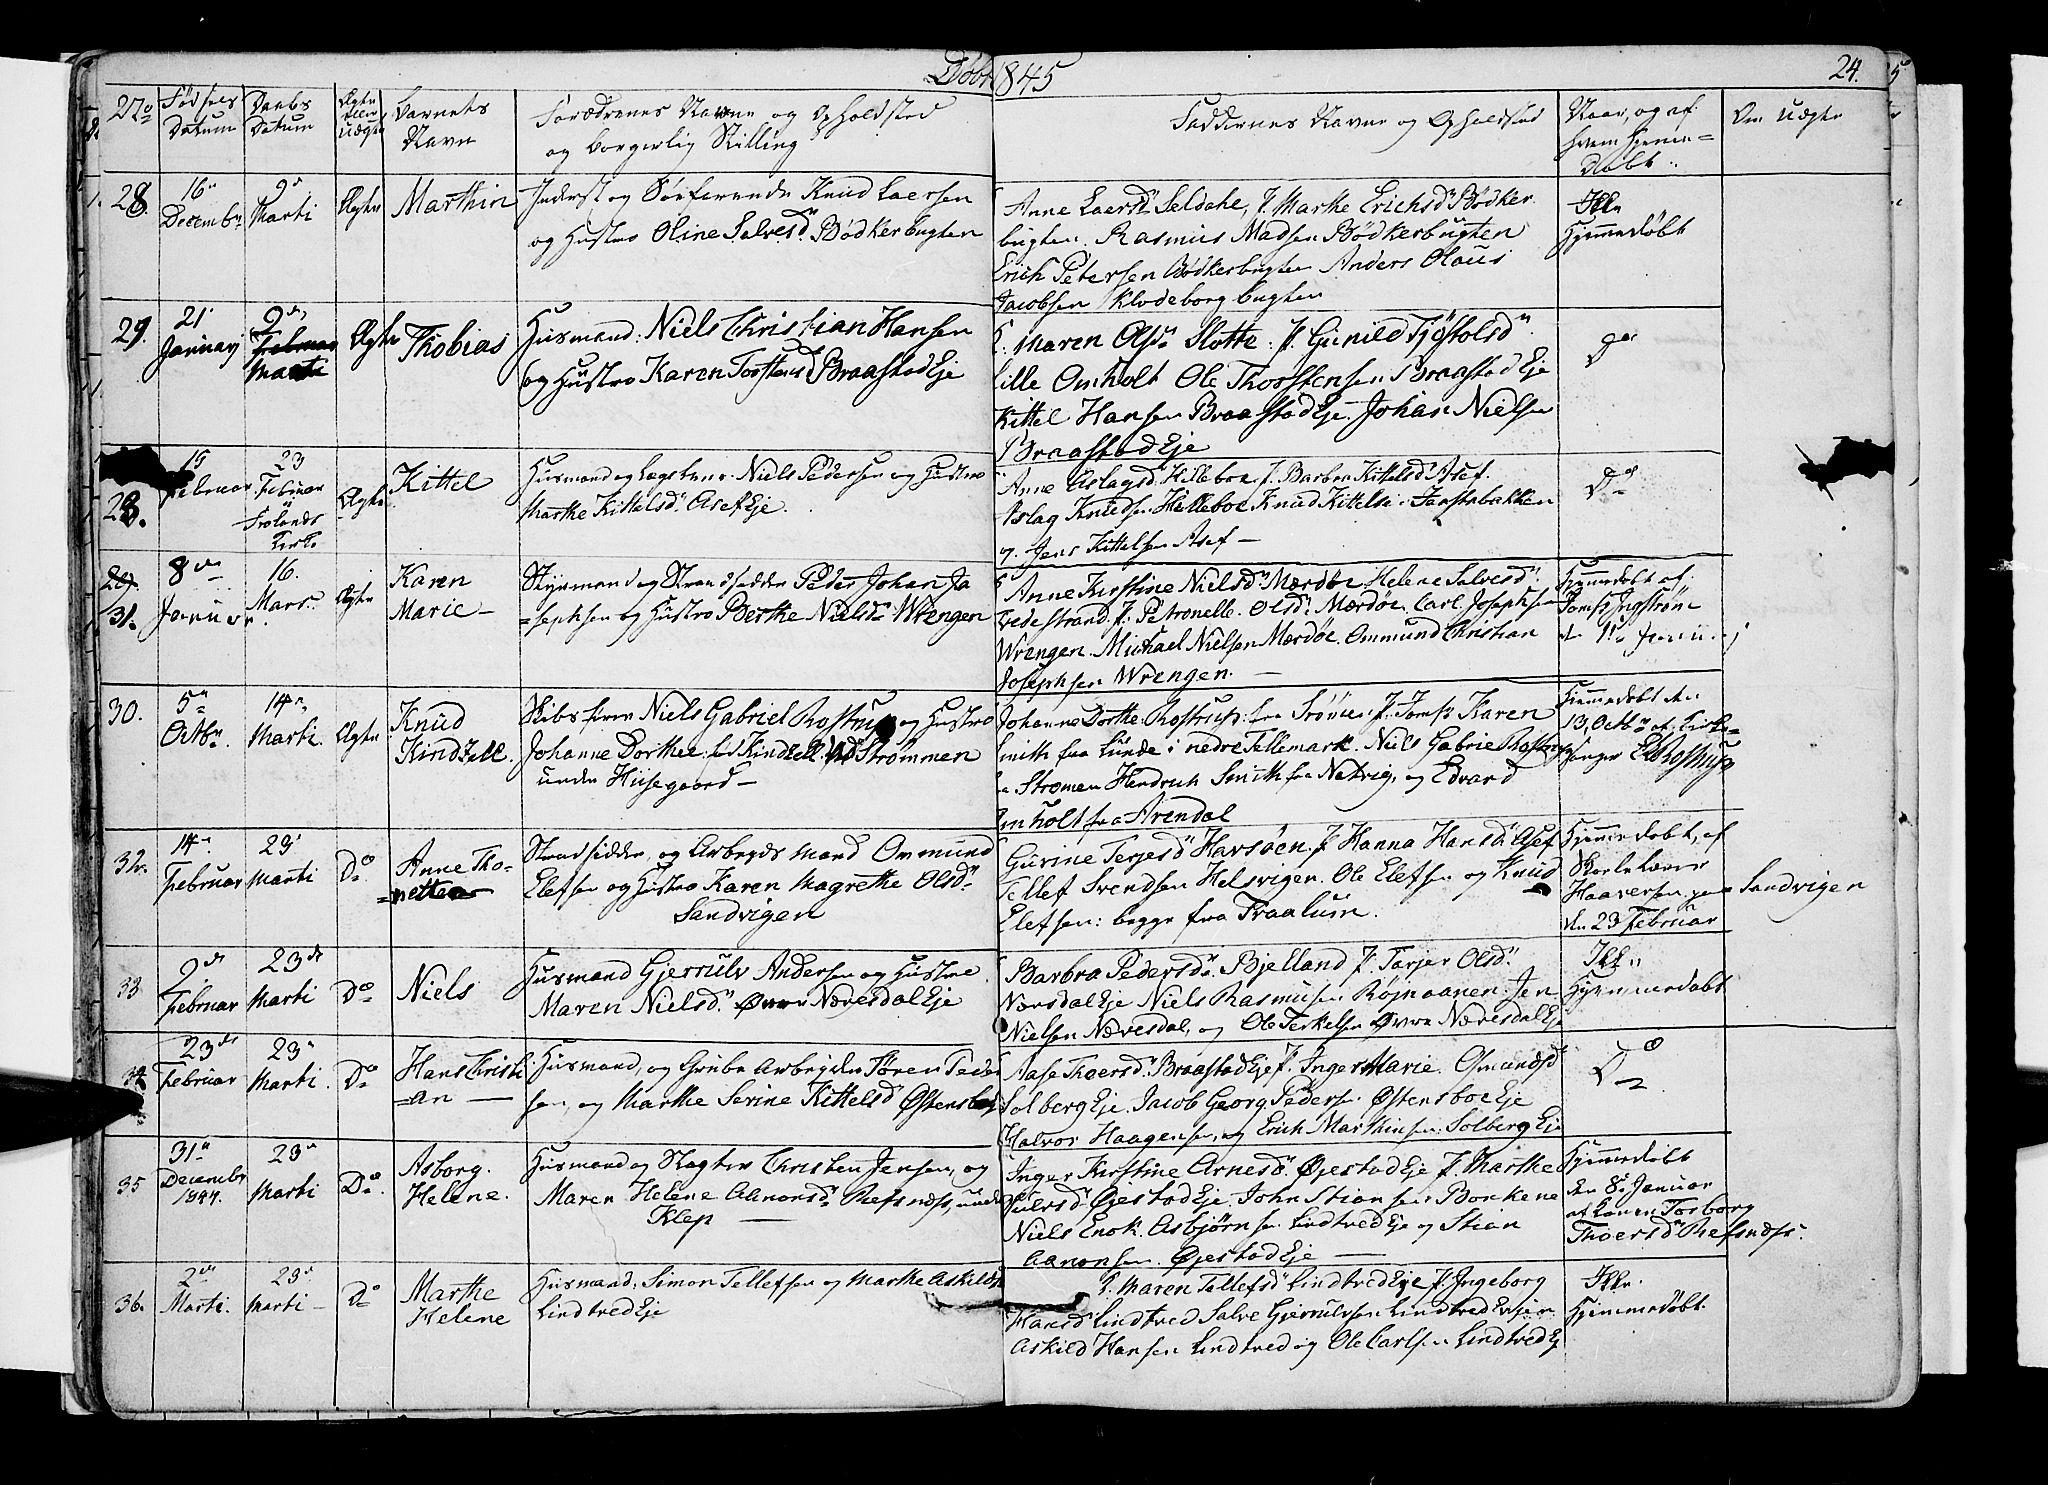 Døbte 1845
24.
No
Fødsels Datum
Daabs Datum
Ægte eller Uægte
Barnets Navn
Forældrenes Navne og Opholdsted
og borgerlig Stilling
Faddernes Navne og Opholdsted
Naar, og af hvem hjemme=døbt
Om Uægte
28.
16 Decembr
9de Marti
Ægte
Marthin
Inderst og Søefarende Knud Laersen
og Hustro Oline Salvesd. Bødkerbugten
Anne Laersd. Seldahl, J. Marthe Erichsd. Bødker
bugten. Rasmus Madsen Bødkerbugten
Erich Petersen Bødkerbugten Anders Olaus
Jacobsen Klodeborg bugten
Ikke
Hjemmedøbt
29.
21 Januarj
2de Februar Marti
Ægte
Thobias
Husmand: Niels Christian Hansen
og Hustro Karen Torstensd Braastad Eje
Maren Olsd. Slotte. J. Gunild Tjøstolsd.
Lille Omholt Ole Thorstensen Braastad Eje
Kittel Hansen Braastad Eje. Johan Nielsen
Braastad Eje
Do
28.
15 Februar
23 Februar
Frolands Kirke
Ægte
Kittel
Husmand og Niels Pedersen og Hustro
Marthe Kittelsd. Asef Eje.
Anne Aslagsd. Helleboe J. Barbra Kittelsd. Asef.
Aslag Knudsen Helleboe Knud Kittelsen
Jens Kittelsen Asef —
Do
29.
31.
8de Januar
16. Mars
Ægte
Karen
Marie —
Styrmand og Strandsidder Peder Johan Jo
=sephsen og Hustro Berthe Nielsd. Wrengen
Anne Kirstine Nielsd. Mærdøe Helene Salvesd.
vedestrand. J. Petronelle. Olsd. Mærdøe. Carl Josephsen
Wrengen. Michael Nielsen Mærdøe. Ommund Christian
Josephsen Wrengen. —
Hjemmedøbt af
Jomf. Ingstrøm
30.
5te Octbr.
14de Marti.
Ægte
Knud
Kindzell.
Skibsfører Niels Gabriel Rostrup og Hustro
Johanne Dorthee fød Kindzell ved Strømmen
under Hisegaard —
Johanne Dorthe Rostrup fra J. Jomf. Karen
Smith fra Lunde i nedre Tellemark. Niels Gabriel Rostrup
Strømen Hendrich Smith fra Natvig, og Edvard
Omholt fra Arendal
Hjemmedøbt den
13. Octbr. af Kirke=
sanger E. Rostrup
32.
14de Februar
23 Marti
Do
Anne Tho=
=nettea
Strandsidder, og Arbeidsmand Ommund
Elefsen og Hustro Karen Magrethe Olsd.
Sandvigen
Gurine Terjesd. Havsøen. J Hanna Hansd. Asef
Tellef Svendsen Helsvigen. Ole Elefsen og Knud
Elefsen: begge fra Traalum.
Hjemmedøbt, af
Skolelærer
Haaversen paa Sandvigen
den 23 Februar
33
2de Februar
23de Marti
Do
Niels
Husmand Gjerrulv Andersen og Hustroe
Maren Nielsd. Øvre Næresdal Eje
Barbra Pedersd. Bjelland J. Tarjer Olsd.
Næresdal Eje Niels Rasmusen Røjnaanen. Jen
Nielsen Næresdal, og Ole Terkelsen Øvre Næresdal Eje
Ikke
Hjemmedøbt
34
23de Februar
23 Marti.
Do
Hans Christi
=an —
Husmand, og Grube Arbeyder Søren Peder
sen, og Marthe Serine Kittelsd Østensboe
Aase Thoersd. Braastad Eje J. Inger Marie. Osmundsd
Solberg Eje. Jacob Georg Pedersen Østensboe Eje
Halvor Haagensen, og Erich Marthinsen Solberg Eje
Do
35
31te December 1844.
23de Marti
Do
Asborg.
Helene.
Husmand og Slagter Christen Jensen, og
Maren Helene Aanonsd. Refsnæs, under
Klep —
Inger Kirstine Arnesd. Øjestad Eje J. Marthe
Øjestad Eje. John Stiansen Borkene
Niels Enok. Asbjørnsen Lindtved Eje og Stian
Aanonsen. Øjestad Eje —
Hjemmedøbt
den 8. Januar
af Konen Torborg
Thoersd. Refsnæs.
36.
2de Marti.
23de Marti —
Do
Marthe
Helene
Husmand, Simon Tellefsen og Marthe Askildsd
Lindtved Eje
Maren Tellefsd. Lindtved Eje J. Ingeborg
Hansd. Lindtved Salve Gjerrulvsen Lindtved Ejer
Askild Hansen Lindtved og Ole Carlsen Lindtved Ej
Ikke
Hjemmedøbt.